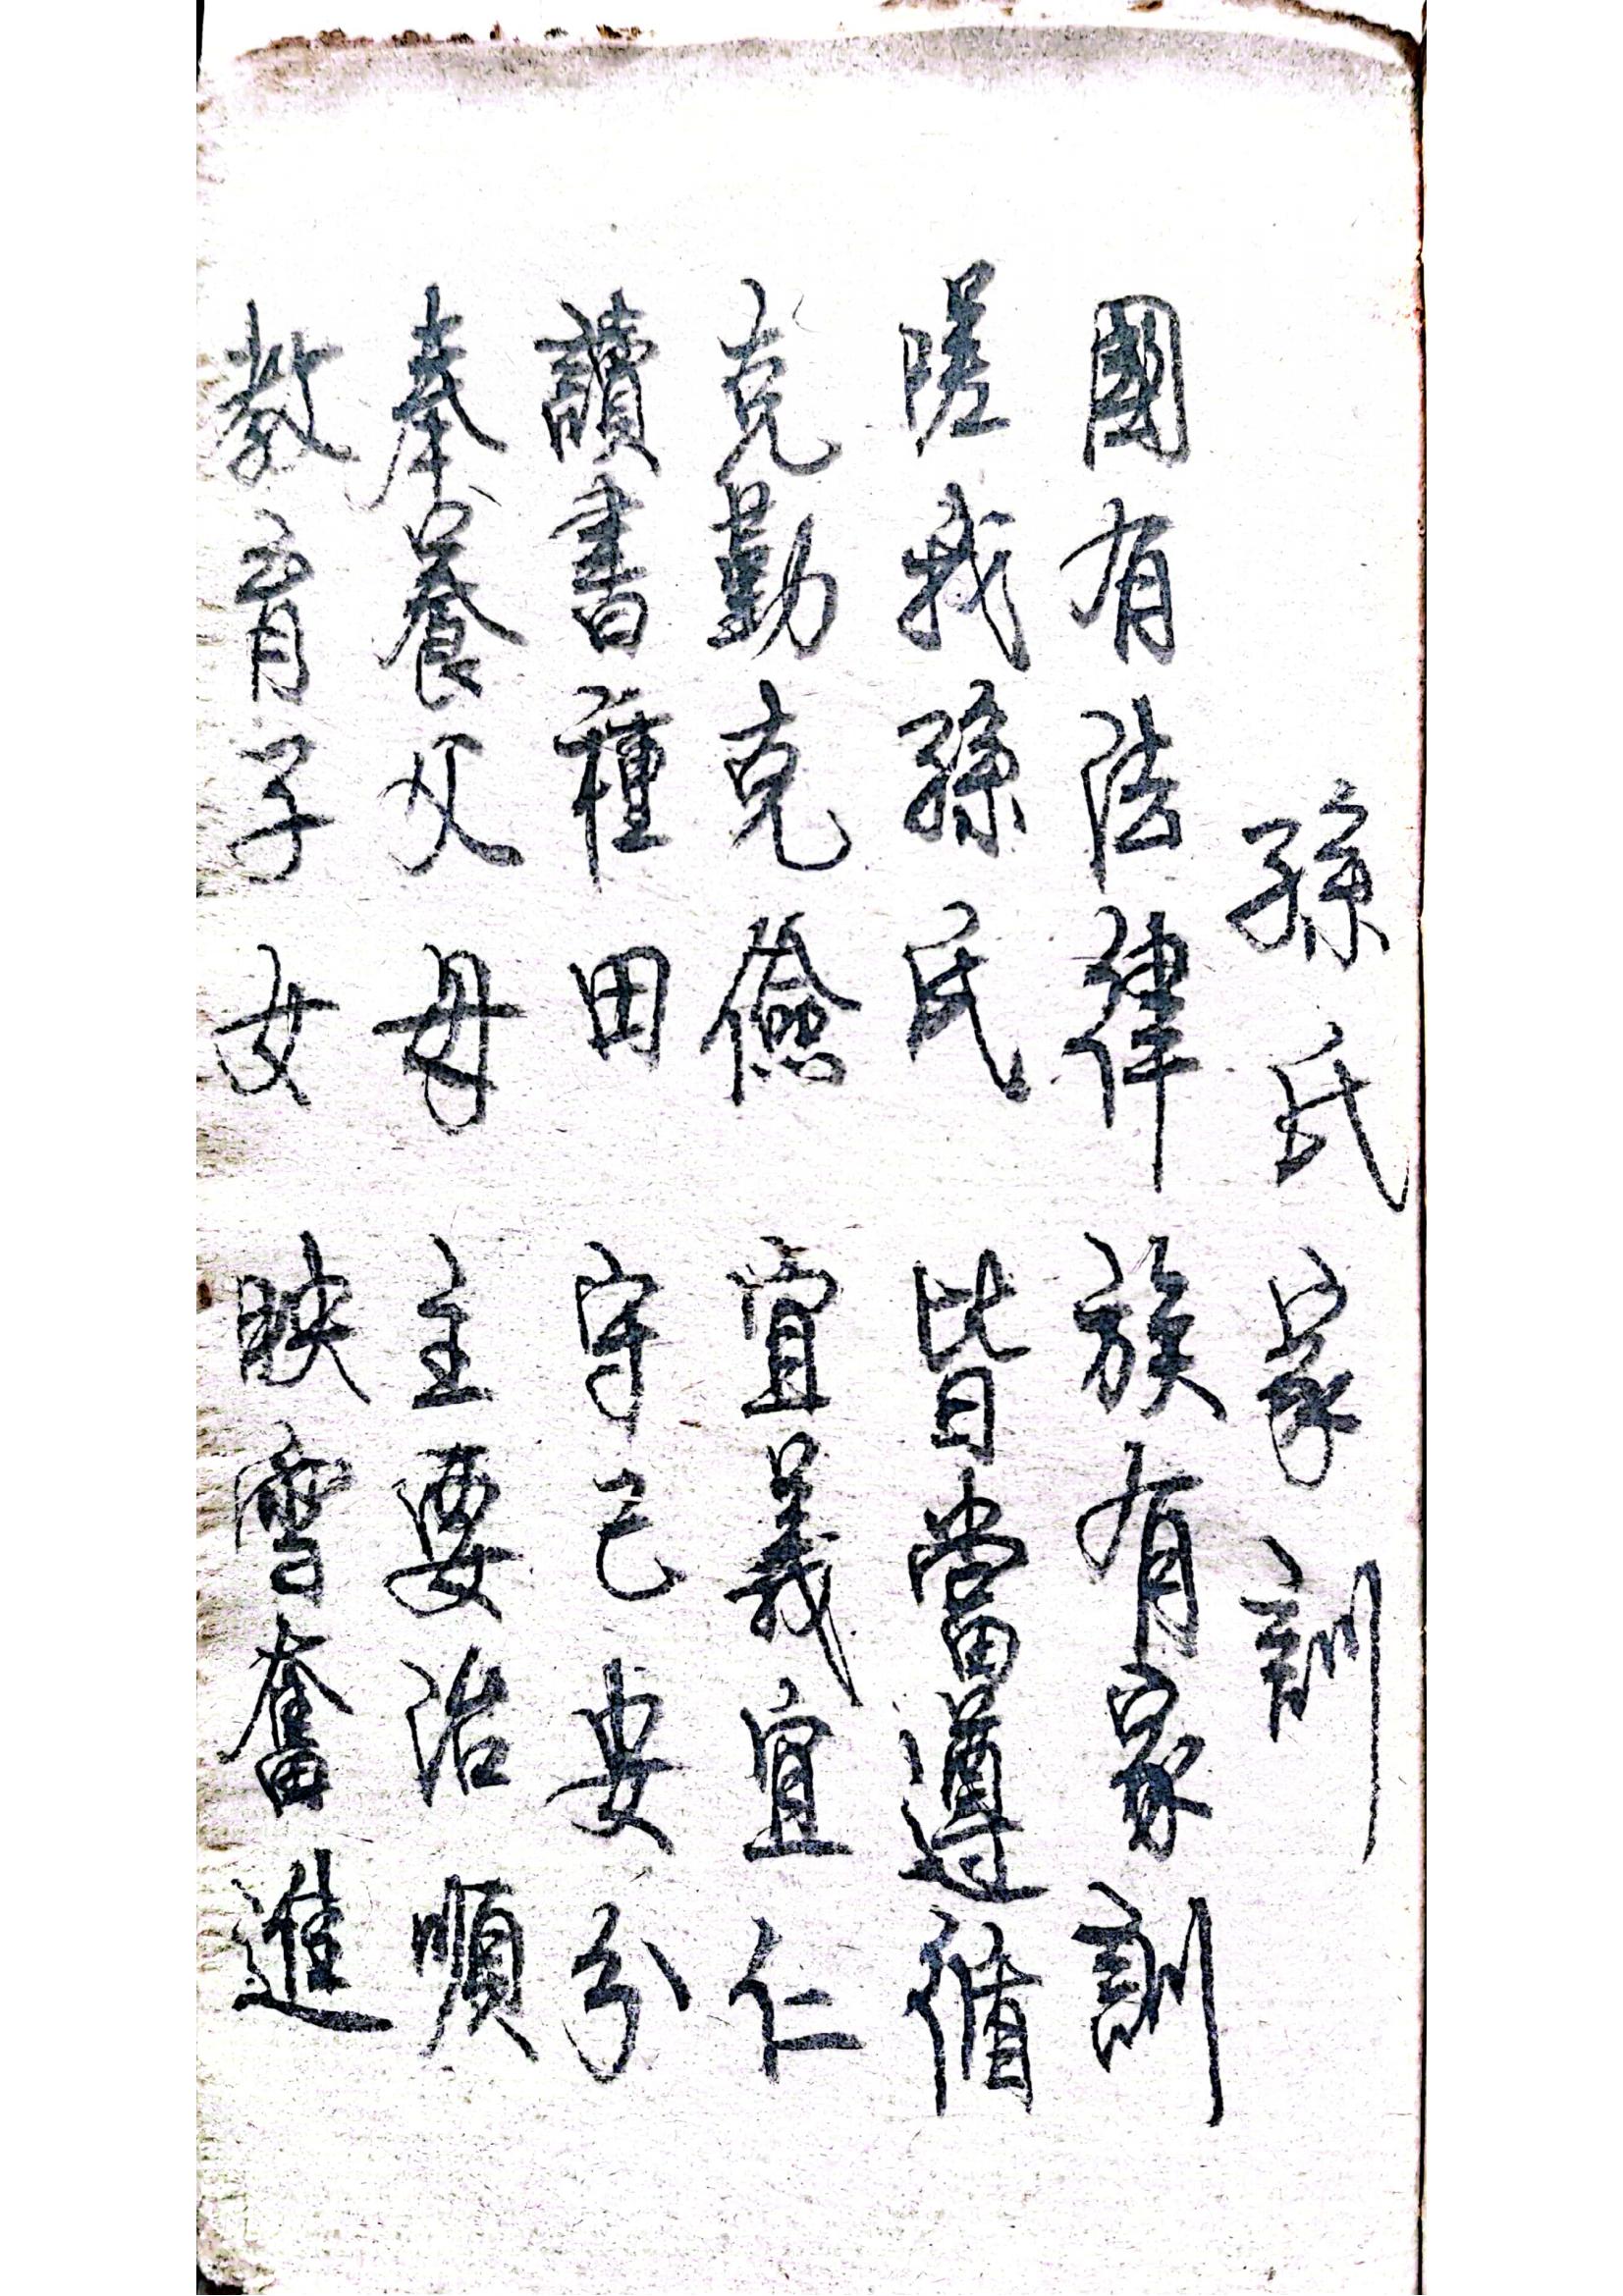 孫氏家訓
國有法律 族有家訓
嗟我孫氏 皆當遵循
克勤克儉 宜義宜仁
讀書種田 守己安分
奉養父母 主要治順
教育子女 映雪奮進